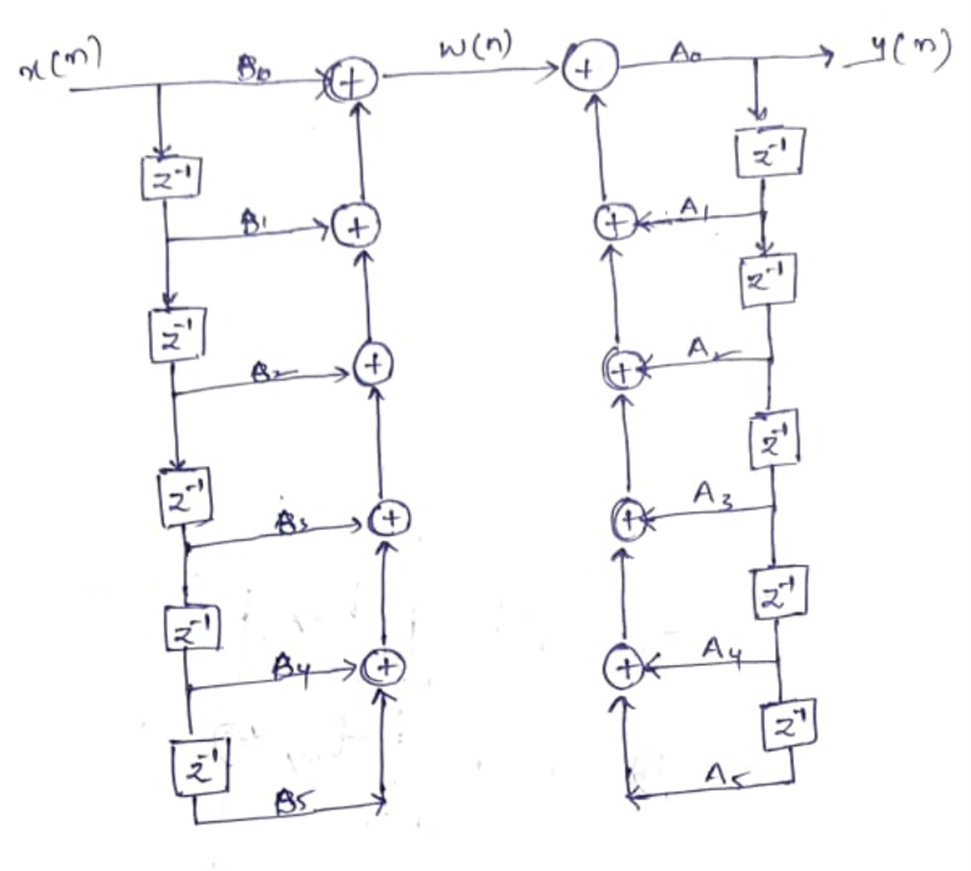 x(n) B0 + w(n) + A0 y(n)
z-1 z-1
B1 + + A1
z-1 z-1
B2 + + A2
z-1 z-1
B3 + + A3
z-1 z-1
B4 + + A4
z-1 z-1
B5 A5